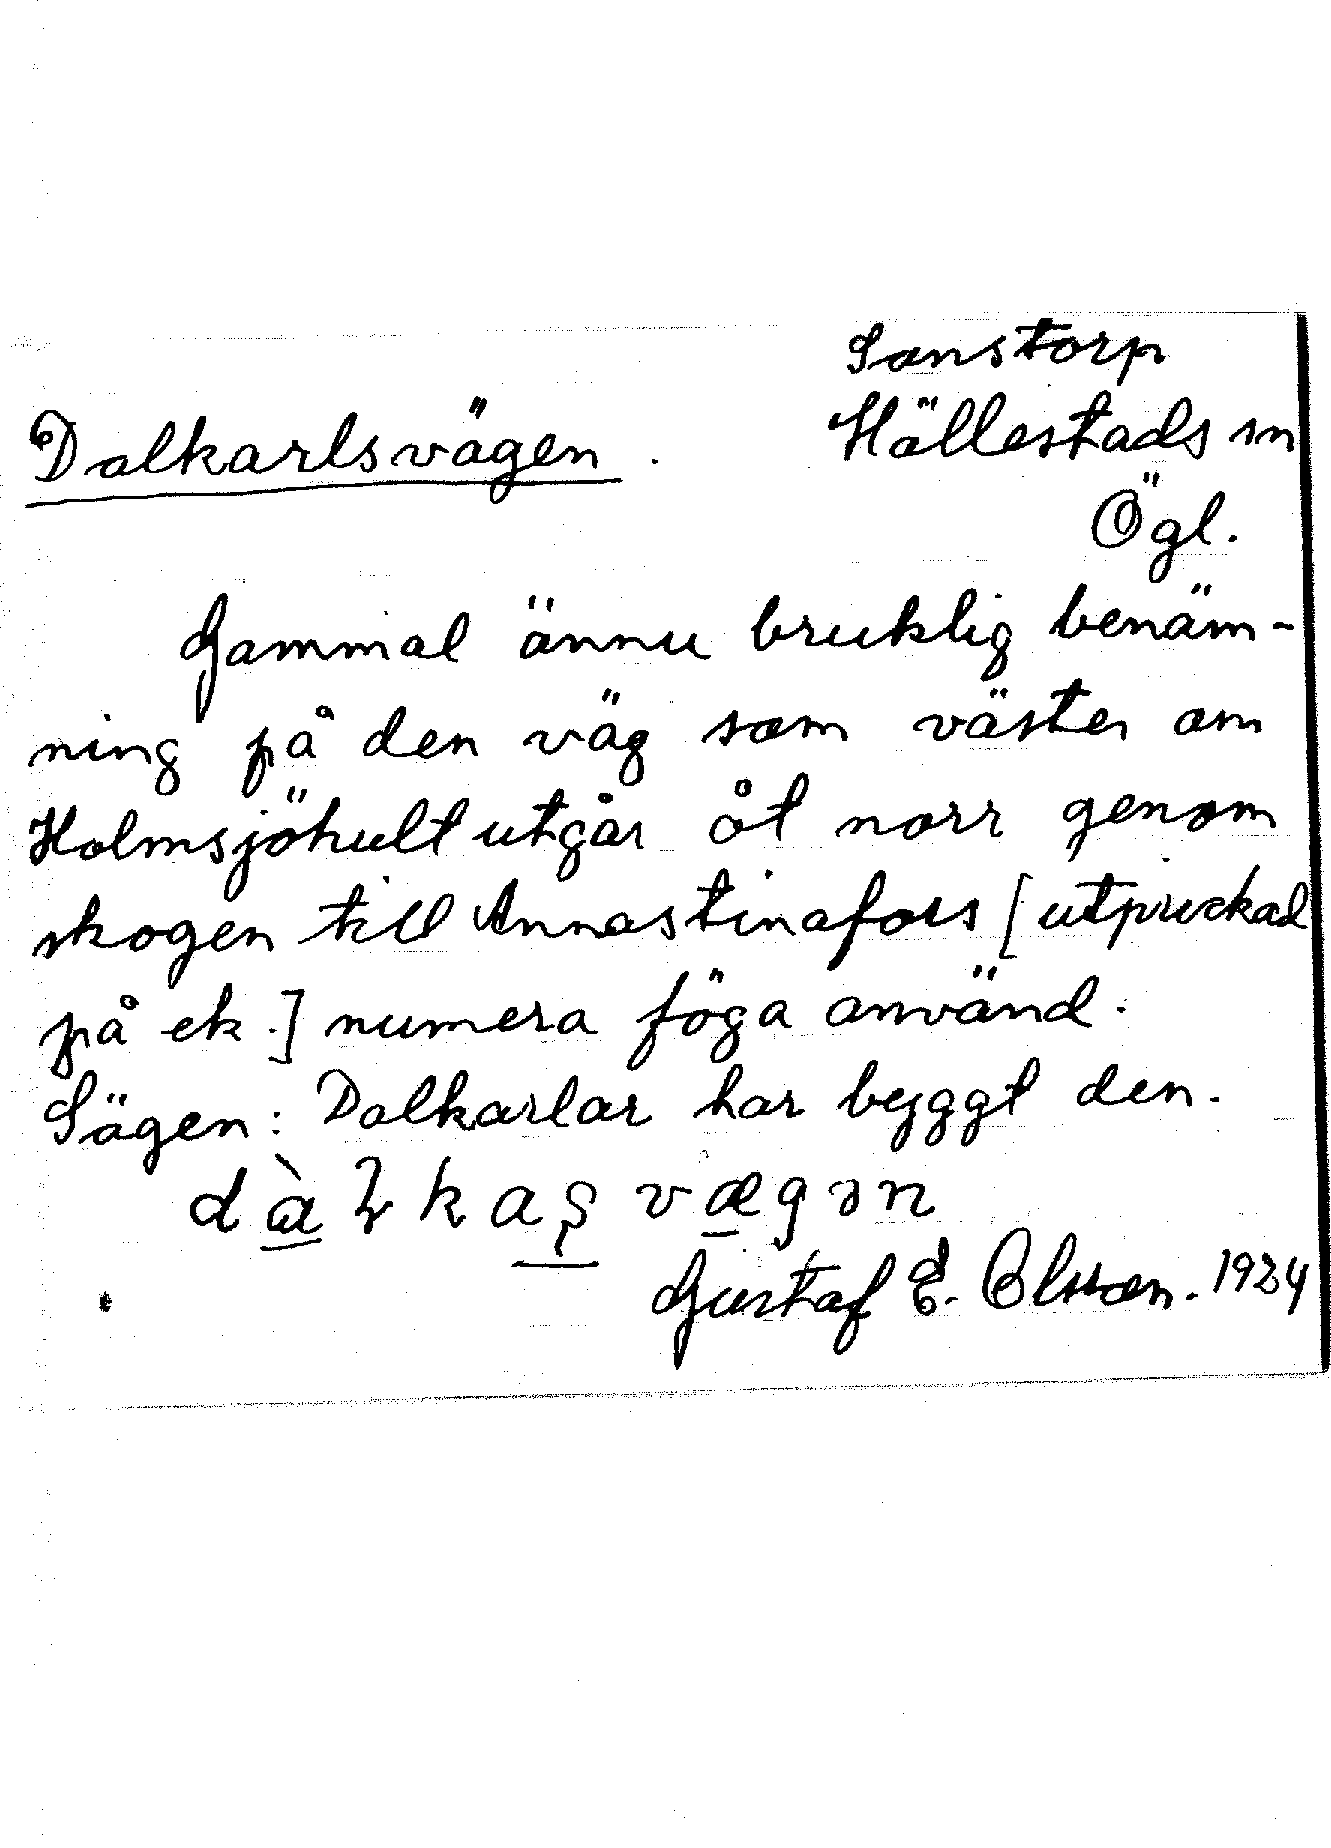 Sonstorp
Dalkarlsvägen.
Hällestads sn
Ögl.
Gammal ännu bruklig benäm-
ning på den väg som väster om
Holmsjöhult utgår åt norr genom
skogen till Annastinafors [utprickad
på ek.] numera föga använd.
Sägen: Dalkarlar har byggt den.
dàɫkaʂvægən
Gustaf E. Olsson. 1934